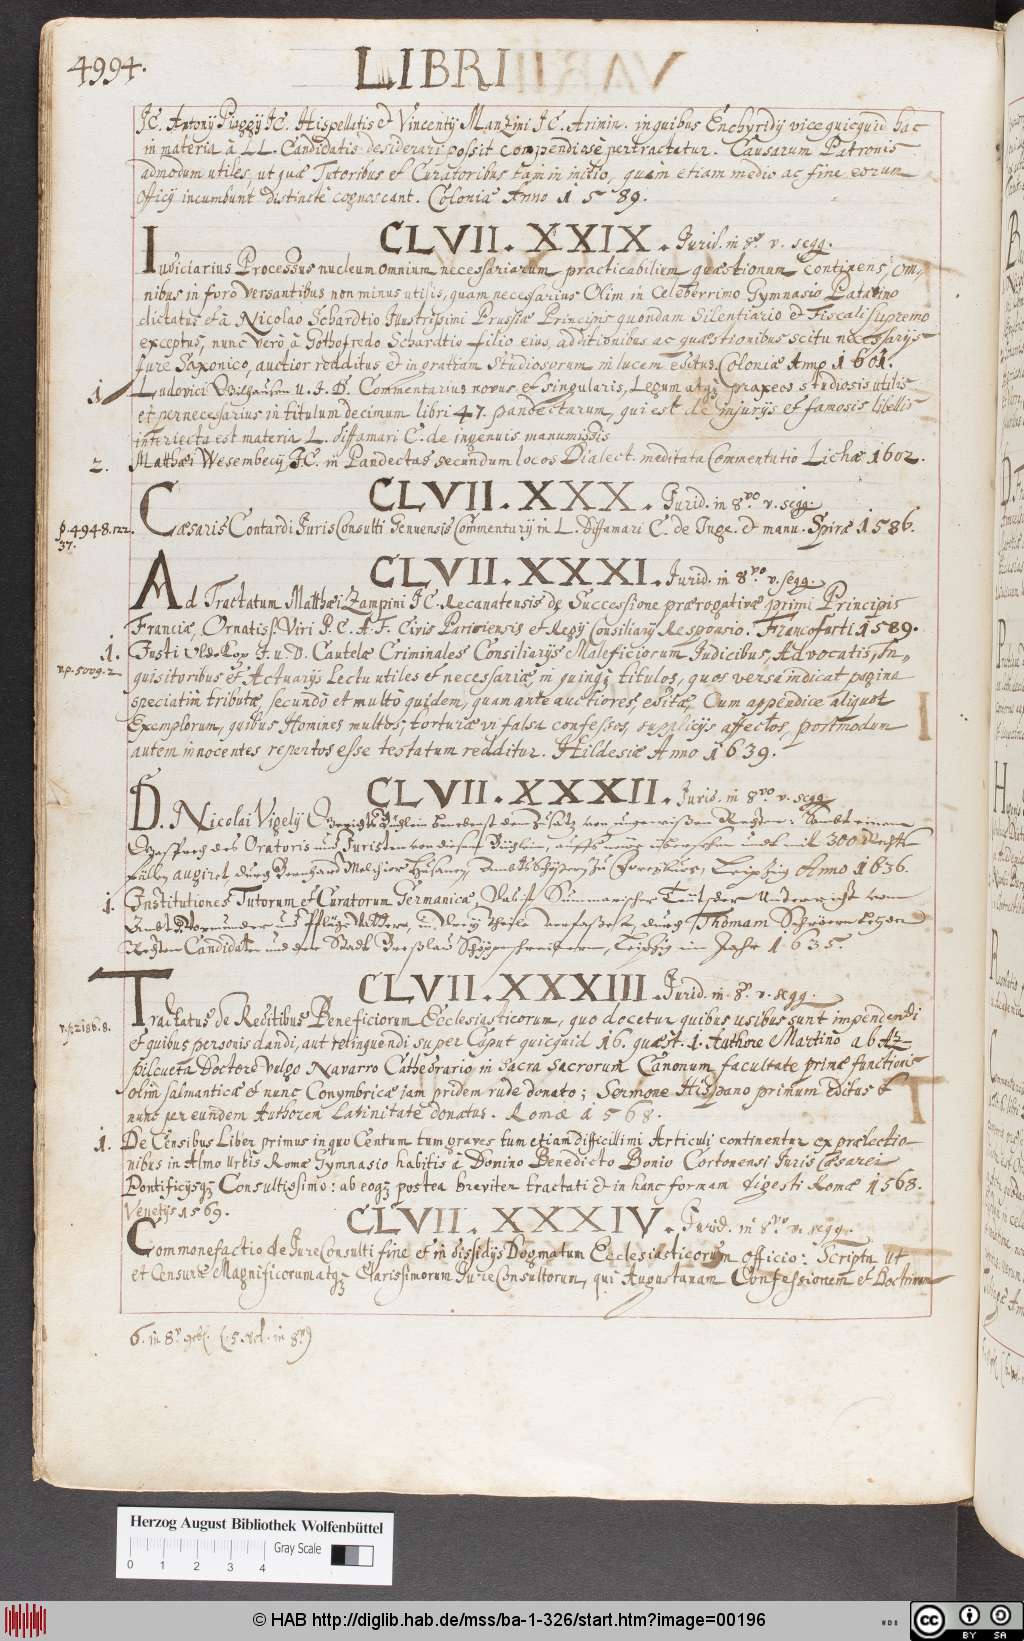 4994.
LIBRI
JC. Antonÿ Piaggÿ JC. Hispellatis et Vincentÿ Manzini JC. Arimin. in quibus Enchyridÿ vice quicquid hac
in materia à LL. Candidatis desiderari possit compendiose pertractatur. Causarum Patronis
admodum utiles, ut quæ Tutoribus et Curatoribus tam in initio, quam etiam medio ac fine eorum
officÿ incumbunt distincte cognoscant. Coloniæ Anno 1589.
CLVII. XXIX. Jurid. in 8vo. v. segg.
Iudiciarius Processus nucleum omnium necessariarum practicabilium quæstionum continens, om,
nibus in foro versantibus non minus utilis, quam necessarius Olim in Celeberrimo Gymnasio Patavino
dictatus et à Nicolao Schardtio Illustrissimi Prussiæ Principis quondam Silentiario et Fiscali supremo
exceptus, nunc verò à Gothofredo Schardtio filio eius, additionibus ac quæstionibus scitu necessarÿs
Jure Saxonico, auctior redditus et in gratiam Studiosorum in lucem editus. Coloniæ Anno 1601.
1. Ludovici Gilhausen U. J. D. Commentarius novus et singularis, Legum atqz praxeos studiosis utilis
et pernecessarius in titulum decimum libri 47. pandectarum, qui est de injurÿs et famosis libellis
interiecta est materia L. diffamari C. de ingenuis manumissis
2. Matthæi Wesembecÿ JC. in Pandectas secundum locos Dialect. meditata Commentatio Lichæ 1602.
CLVII. XXX. Jurid. in 8vo v. segg.
p. 4948. n2.
37.
Cæsaris Contardi Juris Consulti Genuensis Commentarÿ in L. Diffamari C. de Inge. & manu. Spiræ 1586.
CLVII. XXXI. Jurid. in 8vo v. segg.
Ad Tractatum Matthæi Zampini JC. Recanatensis de Successione prærogativæ primi Principis
Franciæ, Ornatiss. Viri P. C. A. F. Civis Parisiensis et Regÿ Consiliarÿ Responsio. Francofurti 1589.
1. Justi Olde Kop J. U. D. Cautelæ Criminales Consiliarÿs Maleficiorum Judicibus, Advocatis, In,
v. p. 5009. 2
quisitoribus et Actuarÿs Lectu utiles et necessariæ in quinqz titulos, quos versa indicat pagina
speciatim tributæ, secundò et multò quidem, quam ante auctiores, editæ, Cum appendice aliquot
Exemplorum, quibus Homines multos, torturæ vi falsa confessos, supplicÿs affectos, postmodum
autem innocentes repertos esse testatum redditur. Hildesiæ Anno 1639.
CLVII. XXXII. Jurid. in 8vo v. segg.
D. Nicolai Vigelÿ Gerichts Büchlein benebenst dem Zusatz von ungewissen Rechten: Sambt einem
Gespräch des Oratoris und Juristen von diesem Büchlein, auffs neue übersehen undt mit 300 Rechts
fällen augirt durch Bernhard Melchior Husanen, Leipzig Anno 1636.
1. Institutiones Tutorum et Curatorum Germanicæ, Das ist Summarischer Teutscher Unterricht vom
Ambt der Vormünder und Pflege Vätter, in drey theile verfasset, durch Thomam Schürern beyder
Rechten Candidaten und der Stadt Breßlau Schöppenschreibern, Leipzig im Jahr 1635.
CLVII. XXXIII. Jurid. in 8vo. v. segg.
v. p. 2186. 8.
Tractatus de Reditibus Beneficiorum Ecclesiasticorum, quo docetur quibus usibus sunt impendendi
et quibus personis dandi, aut relinquendi super Caput quicquid 16. quæst. 1. Authore Martino ab Az-
pilcueta Doctore vulgo Navarro Cathedrario in Sacra Sacrorum Canonum facultate primæ functionis
olim Salmanticæ et nunc Conymbricæ iam pridem rude donato; Sermone Hispano primum editus &
nunc per eundem Authorem Latinitate donatus. Romæ 1568.
1. De Censibus Liber primus in quo Centum tum graves tum etiam difficillimi Articuli continentur ex prælectio-
nibus in Almo Urbis Romæ Gymnasio habitis à Domino Benedicto Bonio Cortonensi Juris Cæsarei
Pontificÿsqz Consultissimo: ab eoqz postea breviter tractati & in hanc formam digesti Romæ 1568.
Venetÿs 1569.
CLVII. XXXIV. Jurid. in 8vo v. segg.
Commonefactio de Jure Consulti fine et in dissidÿs Dogmatum Ecclesiasticorum officio: Scripta ut
et Censuræ Magnificorum atqz Clarissimorum Jure Consultorum, qui Augustanam Confessionem et Doctrinam
6. in 8vo
Herzog August Bibliothek Wolfenbüttel
Gray Scale
0 1 2 3 4
© HAB http://diglib.hab.de/mss/ba-1-326/start.htm?image=00196
WDB
cc BY SA